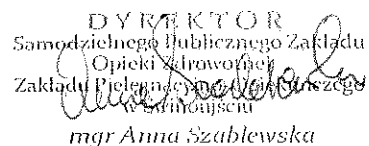 D Y R E K T O R
Samodzielnego Publicznego Zakładu
Opieki Zdrowotnej
Zakładu Pielęgnacyjno-Opiekuńczego
w Świnoujściu
mgr Anna Szablewska